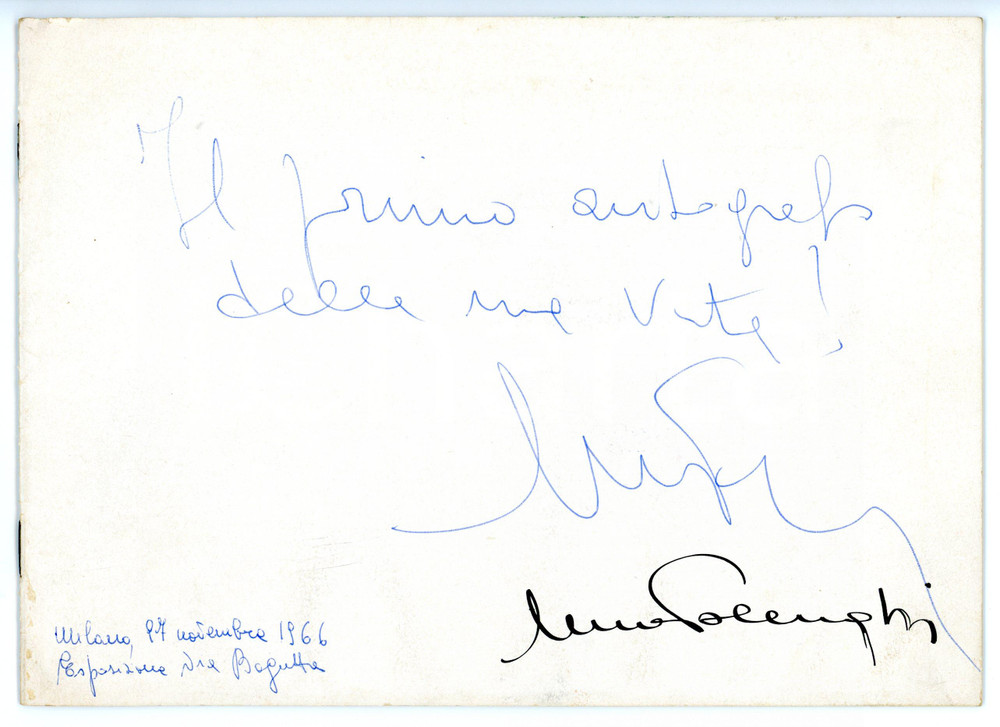 Il primo autografo
della mia Vita!
Milano, 27 novembre 1966
Esposizione Via Bagutta